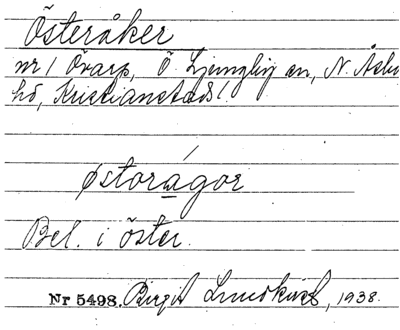 Österåker
nr 1 Övarp, Ö. Ljungby sn, N. Åsbo
hd, Kristianstads l.
østorågor
Bel. i öster.
Nr 5498. Birgit Lundkvist, 1938.